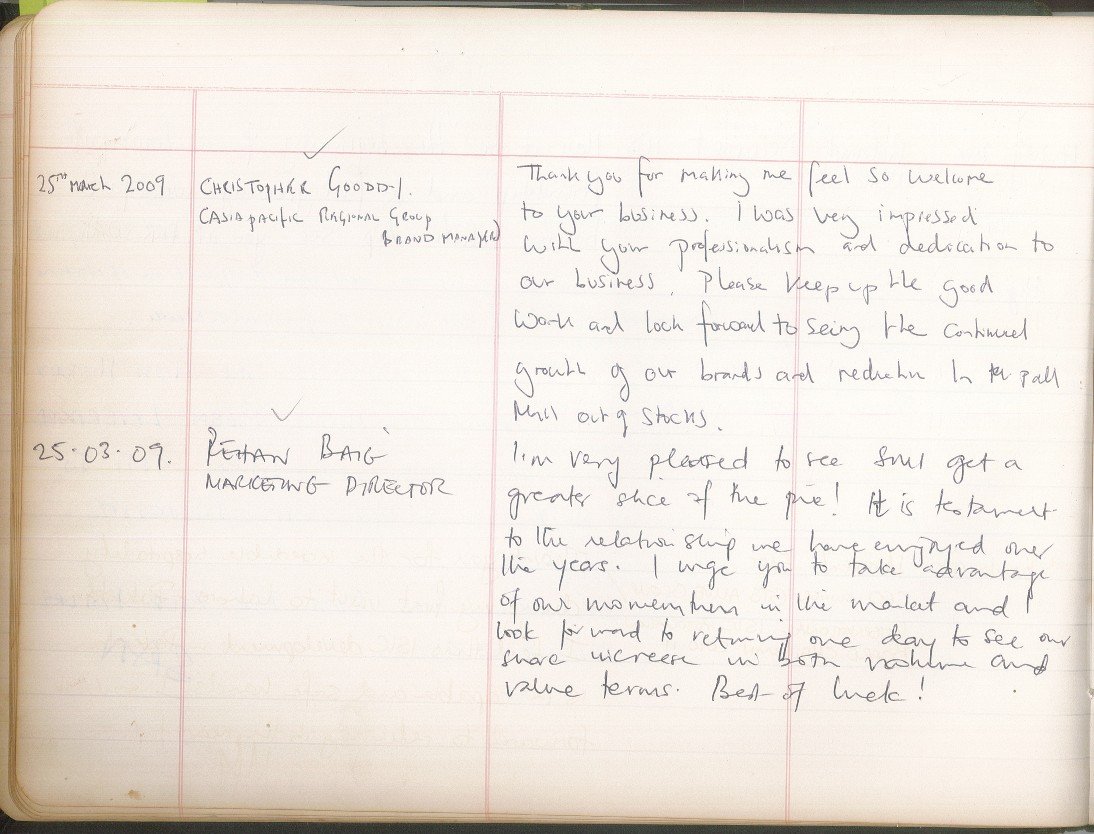 25th March 2009
CHRISTOPHER GOODDY.
(ASIA PACIFIC REGIONAL GROUP
BRAND MANAGER)
Thank you for making me feel so welcome
to your business. I was very impressed
with your professionalism and dedication to
our business. Please keep up the good
work and look forward to seing the continued
growth of our brands and reduction in the pall
Mall out of stocks.
25.03.09.
REHAN BAIG
MARKETING DIRECTOR
I'm very pleased to see get a
greater slice of the pie! It is testament
to the relationship we have enjoyed over
the years. I urge you to take advantage
of our momentum in the market and I
look forward to returning one day to see our
share increase in both volume and
value terms. Best of luck!